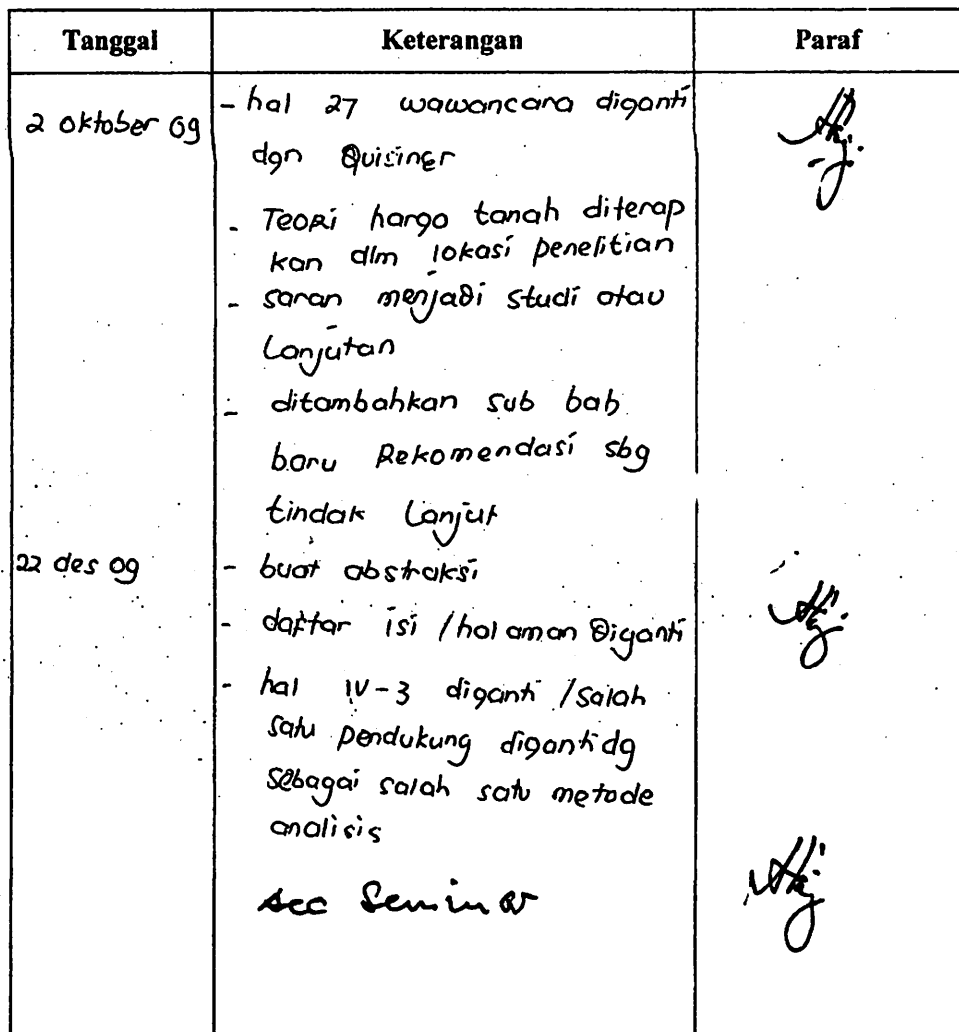 Tanggal Keterangan Paraf
2 oktober 09 - hal 27 wawancara diganti
dgn Quisiner
- Teori harga tanah diterap
kan dlm lokasi penelitian
- saran menjadi studi atau
Lanjutan
- ditambahkan sub bab
baru Rekomendasi sbg
tindak Lanjut
22 des 09 - buat abstraksi
- daftar isi / halaman Diganti
- hal IV-3 diganti / salah
satu pendukung diganti dg
sebagai salah satu metode
analisis
acc Seminar